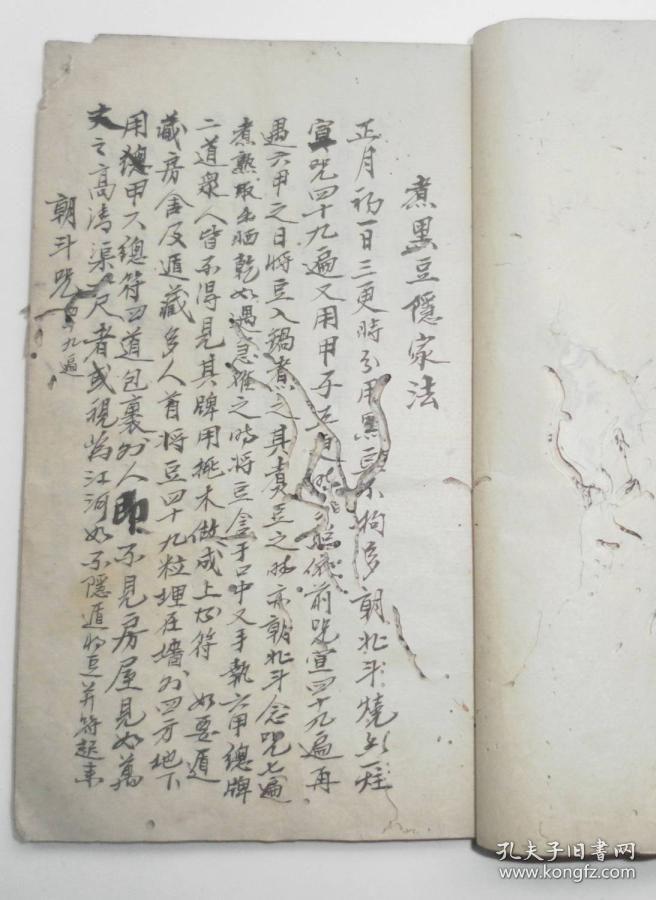 煮黑豆隱家法
正月初一日三更時分用黑豆不拘多 朝北斗燒香一炷
宣咒四十九遍又用甲子五更時 依前咒宣四十九遍再
遇六甲之日將豆入鍋煮之其煮豆之時亦朝北斗念咒七遍
煮熟取出晒乾如遇急難之時將豆含于口中又手執六甲總牌
二道衆人皆不得見其牌用桃木做成上書符 如要遁
藏房舍及遁藏多人者將豆四十九粒埋在墻外四方地下
用總甲六總符四道包裹外人即不見房屋見如萬
丈之高清渠 尺者或視為江河如不隱遁將豆并符起來
朝斗咒 四十九遍
孔夫子旧书网
www.kongfz.com